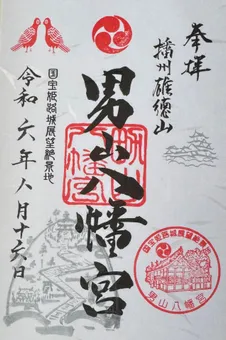 奉拝
播州雄徳山
男山八幡宮
国宝姫路城展望絶景地
令和六年八月十六日
男山八幡宮
国宝姫路城展望絶景
男山八幡宮